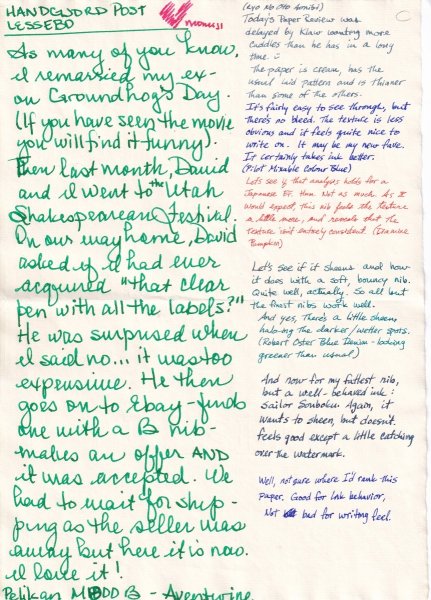 HANDGJORD POST
LESSEBO
momiji
As many of you know,
I remarried my ex-
on Groundhog's Day.
(If you have seen the movie
you will find it funny).
Then last month, David
and I went to the Utah
Shakespearean Festival.
On our way home, David
asked if I had ever
acquired "that clear
pen with all the labels?"
He was surprised when
I said no... it was too
expensive. He then
goes on to Ebay - finds
one with a B nib -
makes an offer AND
it was accepted. We
had to wait for ship-
ping as the seller was
away but here it is now.
I love it!
Pelikan M B - Aventurine
(Ryo No Oto)
Today's Paper Review was
delayed by Klaw wanting more
cuddles than he has in a long
time.
The paper is cream, has the
usual laid pattern and is thinner
than some of the others.
It's fairly easy to see through, but
there's no bleed. The texture is less
obvious and it feels quite nice to
write on. It may be my new fave.
It certainly takes ink better.
(Pilot Mixable Colour Blue)
Let's see if that analysis holds for a
Japanese EF then. Not as much. As I
would expect, this nib feels the texture
a little more, and reveals that the
texture isn't entirely consistent. (Diamine
Pumpkin)
Let's see if it sheens and how
it does with a soft, bouncy nib.
Quite well, actually. So all but
the finest nibs work well.
And yes. There's a little sheen,
haloing the darker/wetter spots.
(Robert Oster Blue Denim - looking
greener than usual)
And now for my fattest nib,
but a well-behaved ink:
Sailor Souboku. Again, it
wants to sheen, but doesn't.
feels good except a little catching
over the watermark.
Well, not sure where I'd rank this
paper. Good for ink behavior,
Not bad for writing feel.